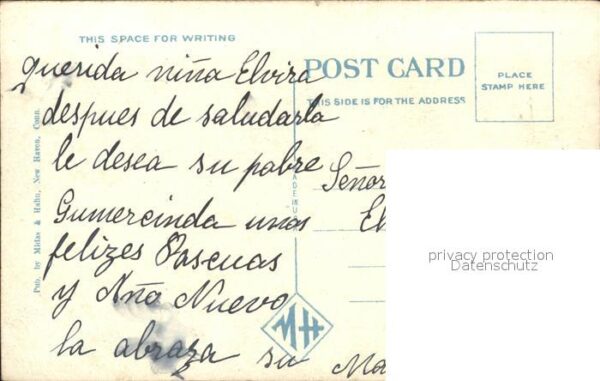 THIS SPACE FOR WRITING
querida niña Elvira
despues de saludarla
le desea su pobre
Gumercinda unas
felizes Pascuas
y Año Nuevo
la abraza su Ma
POST CARD
THIS SIDE IS FOR THE ADDRESS
PLACE
STAMP HERE
Señor
El
privacy protection
Datenschutz
Pub. by Midas & Hahn, New Haven, Conn.
MADE IN U
MH